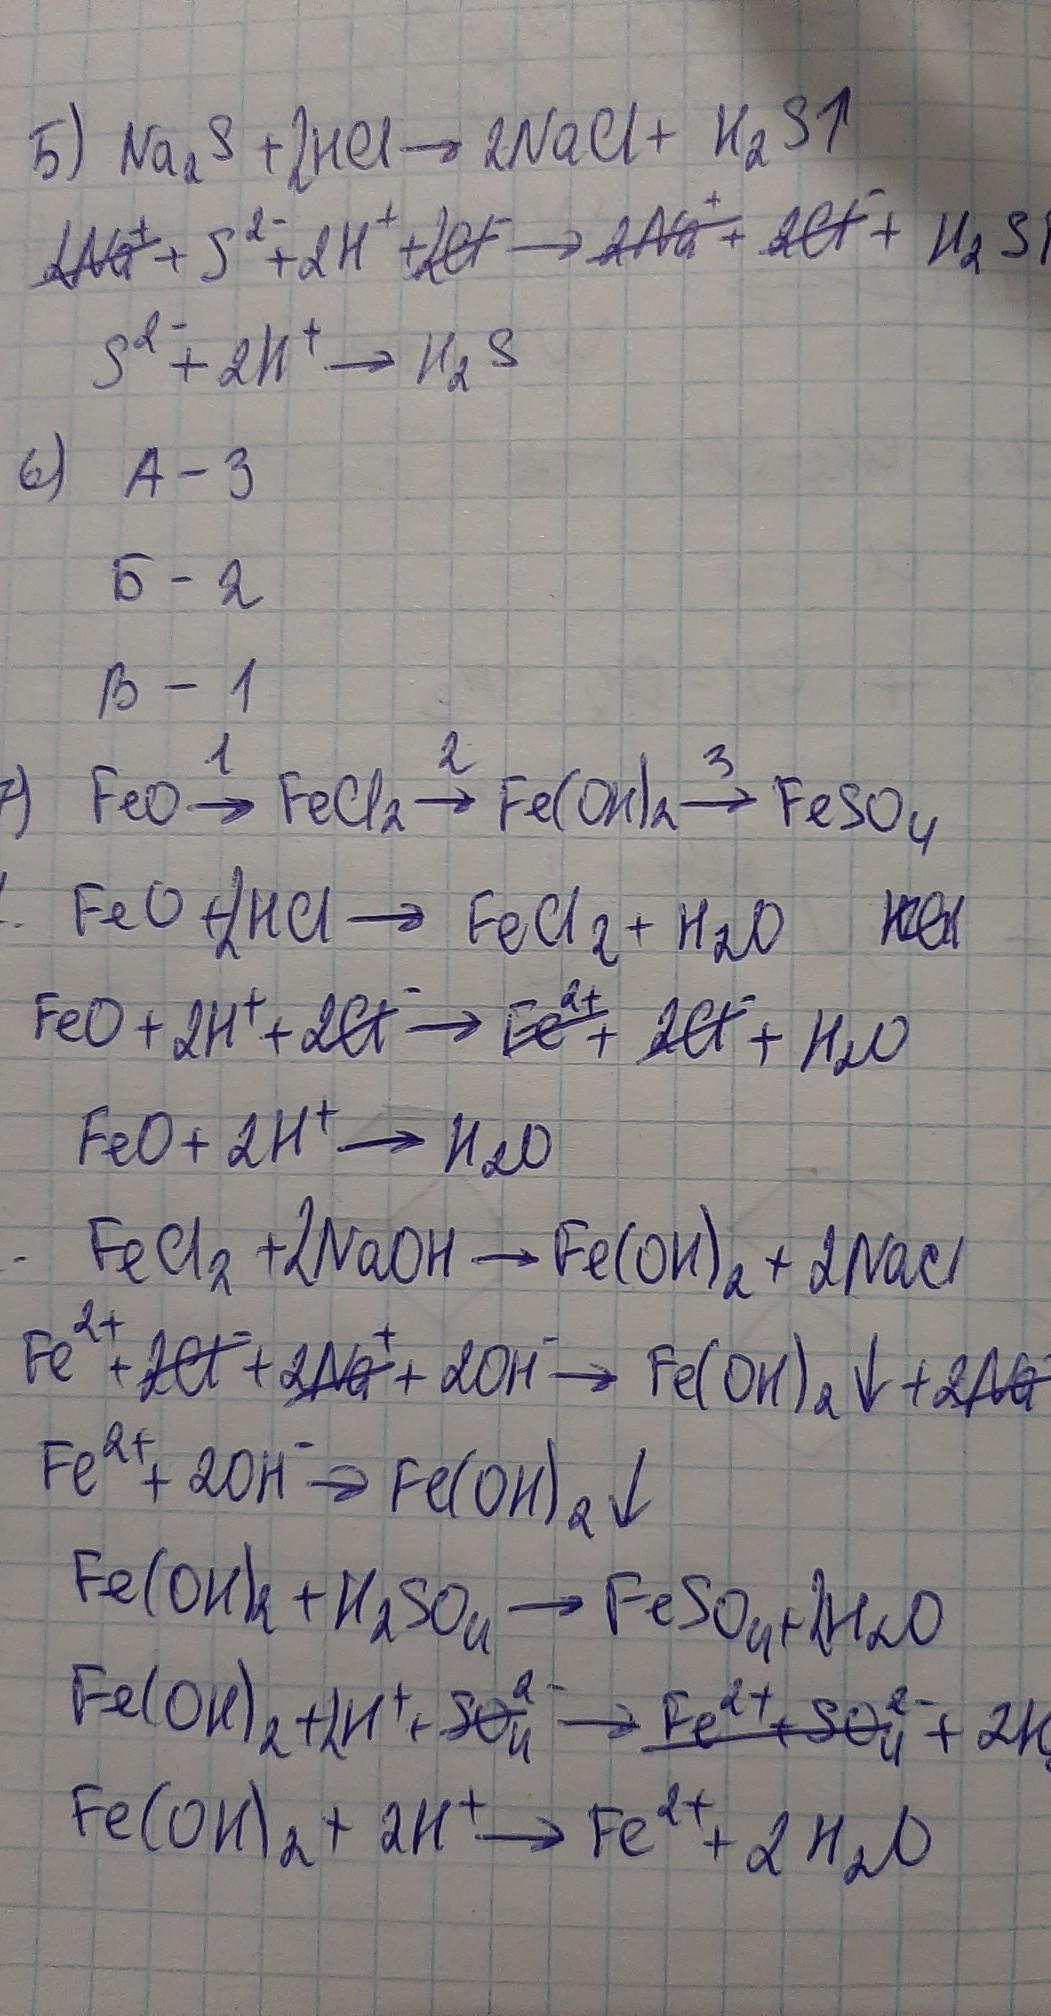 5) Na₂S + 2HCl → 2NaCl + H₂S↑
2Na⁺ + S²⁻ + 2H⁺ + 2Cl⁻ → 2Na⁺ + 2Cl⁻ + H₂S↑
S²⁻ + 2H⁺ → H₂S
6) А - 3
Б - 2
В - 1
7) FeO →¹ FeCl₂ →² Fe(OH)₂ →³ FeSO₄
FeO + 2HCl → FeCl₂ + H₂O
FeO + 2H⁺ + 2Cl⁻ → Fe²⁺ + 2Cl⁻ + H₂O
FeO + 2H⁺ → H₂O
FeCl₂ + 2NaOH → Fe(OH)₂ + 2NaCl
Fe²⁺ + 2Cl⁻ + 2Na⁺ + 2OH⁻ → Fe(OH)₂↓ + 2Na
Fe²⁺ + 2OH⁻ → Fe(OH)₂↓
Fe(OH)₂ + H₂SO₄ → FeSO₄ + 2H₂O
Fe(OH)₂ + 2H⁺ + SO₄²⁻ → Fe²⁺ + SO₄²⁻ + 2H₂
Fe(OH)₂ + 2H⁺ → Fe²⁺ + 2H₂O